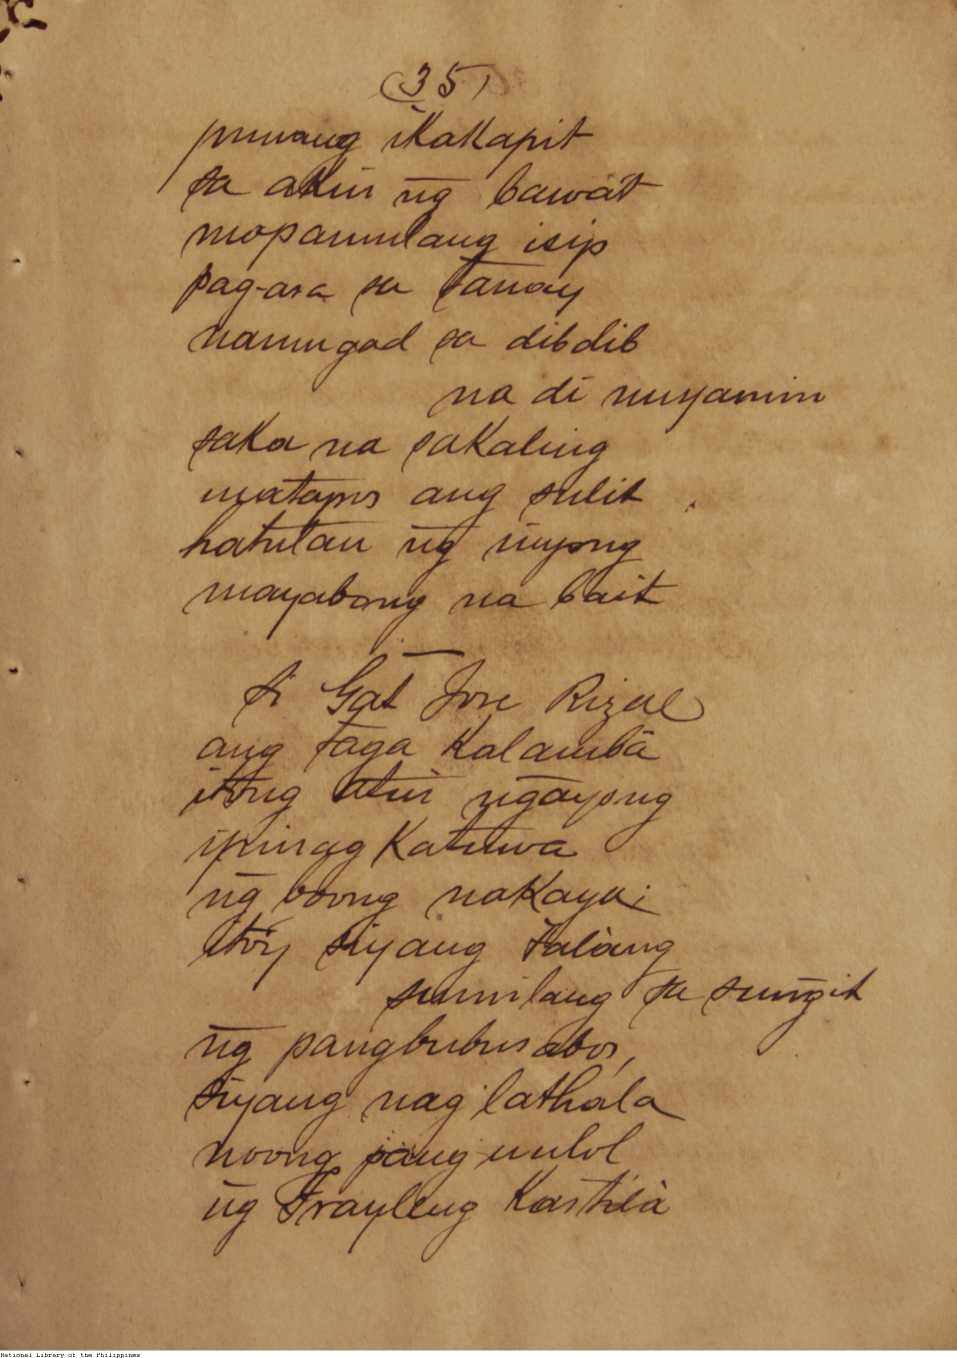 (35)
punang ikakapit
sa akin n̄g bawat
mopanulang isip
pag-asa sa tanay
nanungad sa dibdib
na di
saka na sakaling
matapos ang sulit
hatulan n̄g inyong
mayabong na bait
Si Gat Jose Rizal
ang taga Kalambā
itong atin n̄gayong
ipinag Katuwa
n̄g boong nakaya;
itóy siyang talàng
sumilang sa sun̄git
n̄g pangbubusabos,
siyang nag lathala
noong pang-uulol
n̄g Frayleng Kastilà
National Library of the Philippines